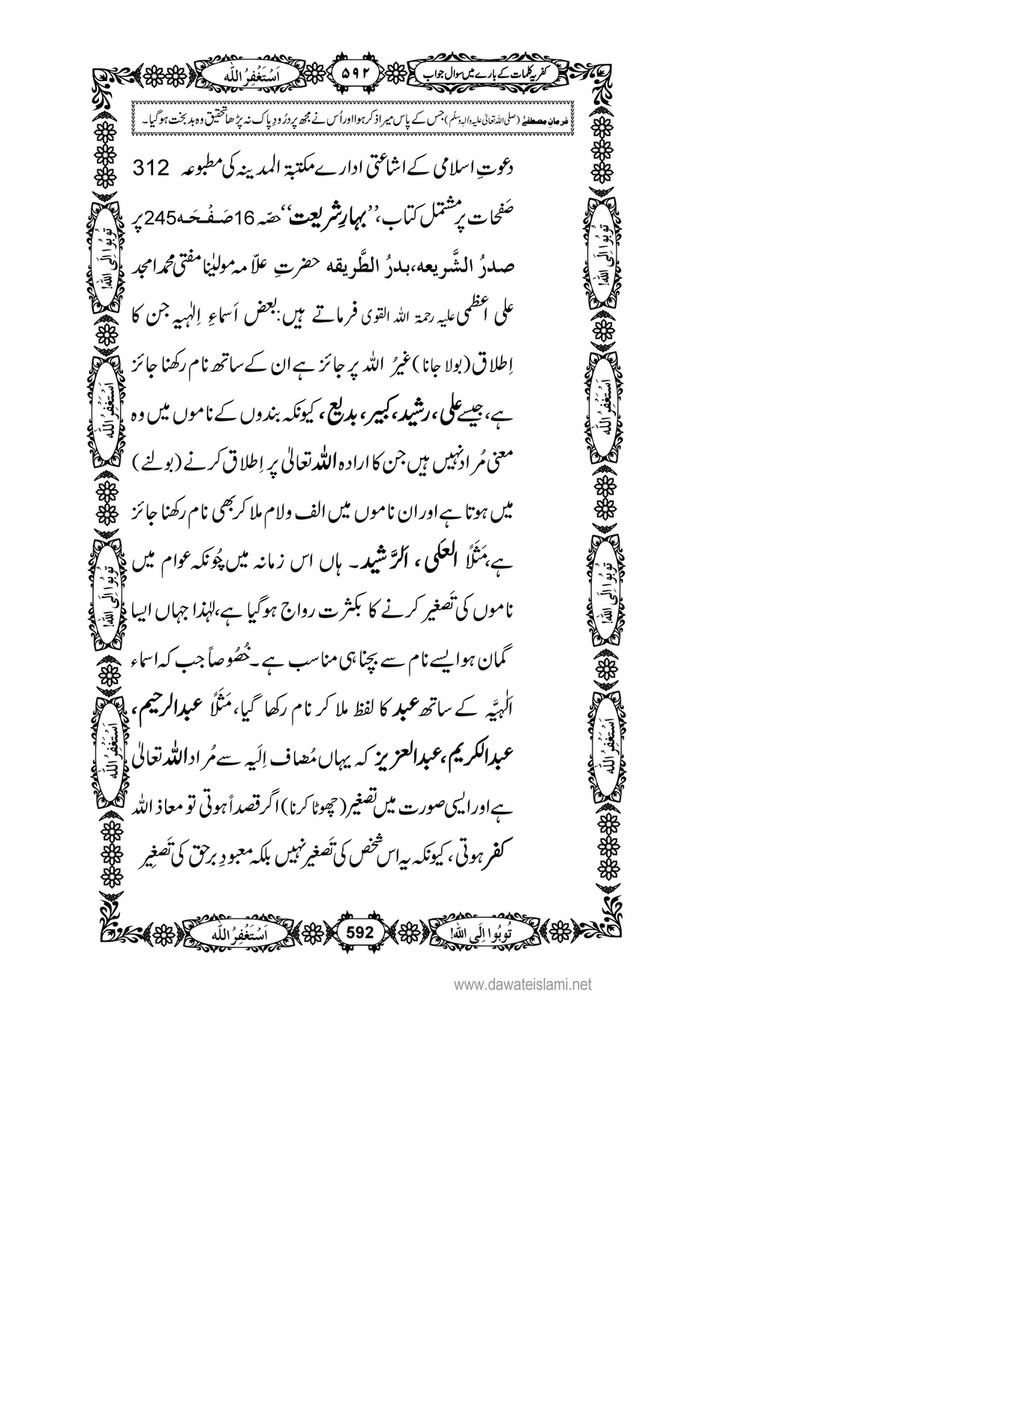 کفریہ کلمات کے بارے میں سوال جواب
۵۹۲
اَسْتَغْفِرُ اللّٰه
فرمانِ مصطفےٰ (صلی اللہ تعالیٰ علیہ والہ وسلم) جس کے پاس میرا ذکر ہوا اور اُس نے مجھ پر دُرُودِ پاک نہ پڑھا تحقیق وہ بدبخت ہو گیا۔
دعوتِ اسلامی کے اشاعتی ادارے مکتبۃ المدینہ کی مطبوعہ 312
صَفَحات پر مشتمل کتاب، ’’بہارِ شریعت‘‘ حصّہ 16 صَفْحَہ 245 پر
صدرُ الشَّریعه، بدرُ الطَّریقه حضرتِ علاّمہ مولیٰنا مفتی محمد امجد
علی اعظمی علیہ رحمۃ اللہ القوی فرماتے ہیں: بعض اَسماءِ اِلٰہیہ جن کا
اِطلاق (بولا جانا) غیرُ اللہ پر جائز ہے ان کے ساتھ نام رکھنا جائز
ہے، جیسے علی، رشید، کبیر، بدیع، کیونکہ بندوں کے ناموں میں وہ
معنیٰ مُراد نہیں ہیں جن کا ارادہ اللہ تعالیٰ پر اِطلاق کرنے (بولنے)
میں ہوتا ہے اور ان ناموں میں الف ولام ملا کر بھی نام رکھنا جائز
ہے، مَثَلاً العلی، اَلرَّشید۔ ہاں اس زمانہ میں چُونکہ عوام میں
ناموں کی تَصغیر کرنے کا بکثرت رواج ہو گیا ہے، لہٰذا جہاں ایسا
گمان ہو ایسے نام سے بچنا ہی مناسب ہے۔ خُصُوصاً جب کہ اسماء
الٰہیَّہ کے ساتھ عبد کا لفظ ملا کر نام رکھا گیا، مَثَلاً عبدالرحیم،
عبدالکریم، عبدالعزیز کہ یہاں مُضاف اِلَیہ سے مُراد اللہ تعالیٰ
ہے اور ایسی صورت میں تصغیر (چھوٹا کرنا) اگر قصداً ہوتی تو معاذ اللہ
کفر ہوتی، کیونکہ یہ اس شخص کی تَصغیر نہیں بلکہ معبودِ برحق کی تَصغیر
تُوبُوا اِلَی اللّٰه!
اَسْتَغْفِرُ اللّٰه
تُوبُوا اِلَی اللّٰه!
اَسْتَغْفِرُ اللّٰه
تُوبُوا اِلَی اللّٰه!
اَسْتَغْفِرُ اللّٰه
تُوبُوا اِلَی اللّٰه!
اَسْتَغْفِرُ اللّٰه
تُوبُوا اِلَی اللّٰه!
592
اَسْتَغْفِرُ اللّٰه
www.dawateislami.net